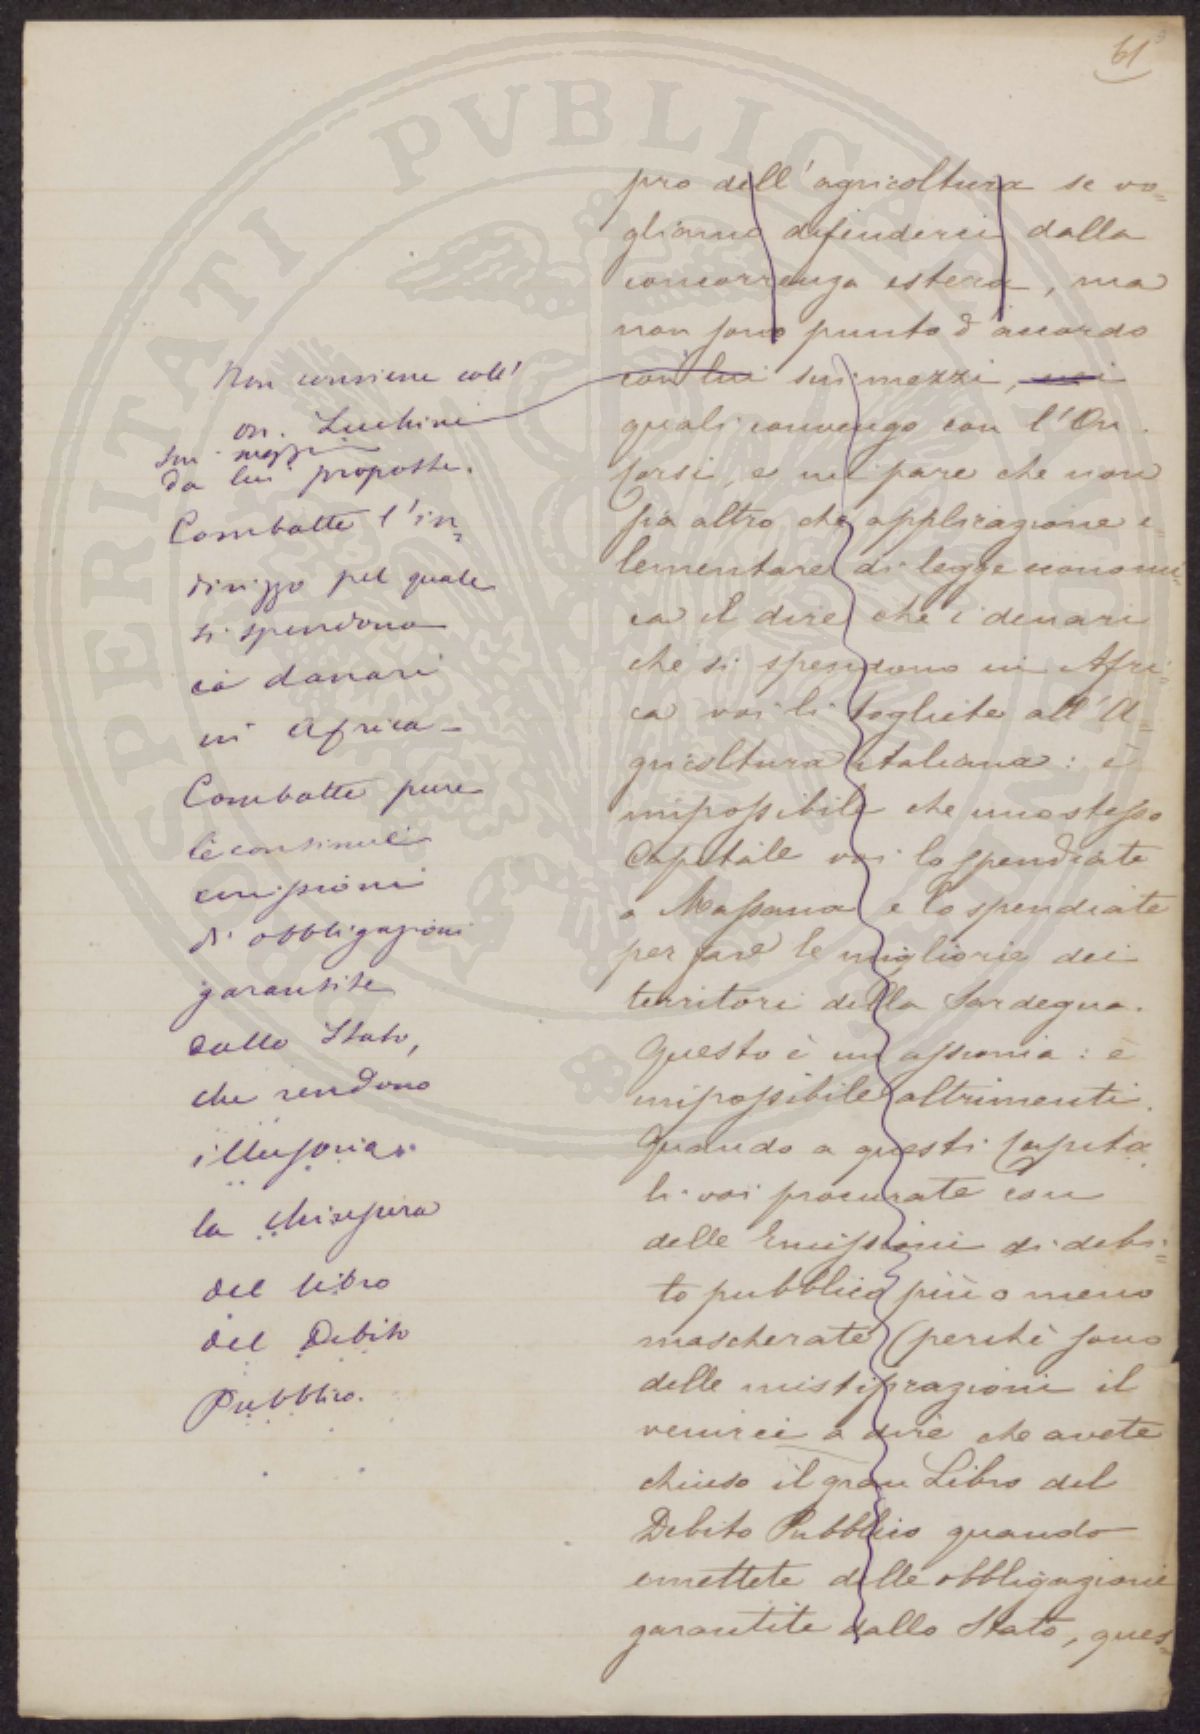 61
pro dell'agricoltura se vo=
gliamo difenderci dalla
concorrenza estera, ma
non sono punto d'accordo
con lui sui mezzi, nei
quali convengo con l'On.
Corsi, e mi pare che non
sia altro che applicazione e=
lementare di legge economi=
ca il dire che i denari
che si spendono in Afri=
ca voi li togliete all'A=
gricoltura italiana: è
impossibile che uno stesso
Capitale voi lo spendiate
a Massaua e lo spendiate
per fare le migliorie dei
territori della Sardegna.
Questo è un assioma: è
impossibile altrimenti.
Quando a questi Capita
li voi procurate con
delle Emissioni di debi=
to pubblico più o meno
mascherate (perchè sono
delle mistificazioni il
venirci a dire che avete
chiuso il gran Libro del
Debito Pubblico quando
emettete delle obbligazioni
garantite dallo Stato, ques=
Non conviene coll'
on. Luchini
sui mezzi
da lui proposti.
Combatte l'in=
dirizzo pel quale
si spendono
danari
in Africa -
Combatte pure
le continue
emissioni
di obbligazioni
garantite
dallo Stato,
che rendono
illusoria
la chiusura
del libro
del Debito
Pubblico.
PROSPERITATI PVBLICAE